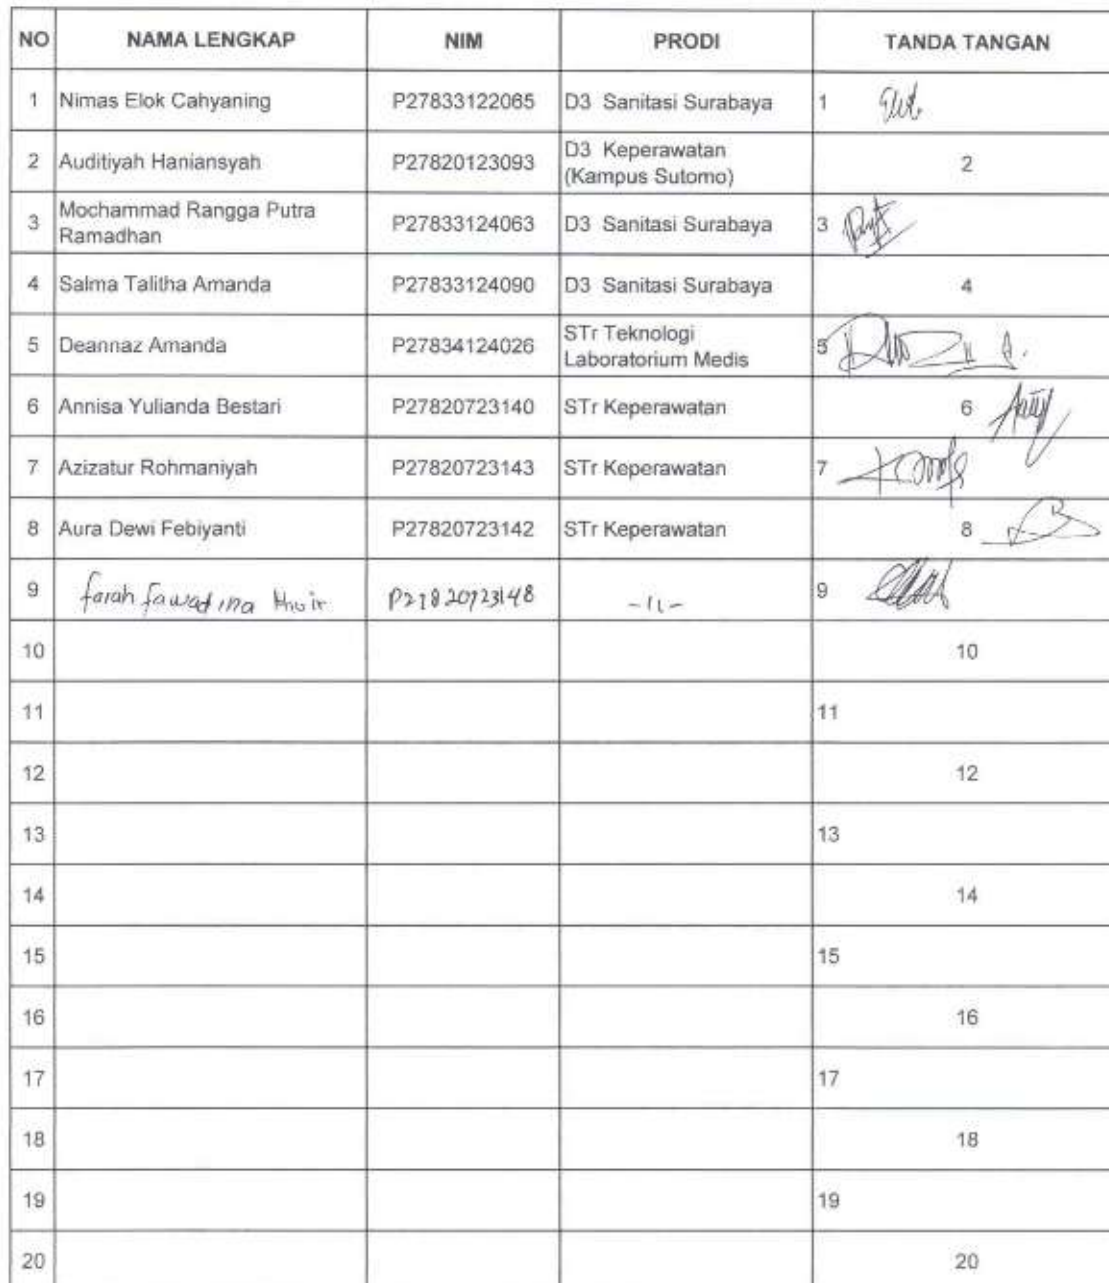 NO NAMA LENGKAP NIM PRODI TANDA TANGAN
1 Nimas Elok Cahyaning P27833122065 D3 Sanitasi Surabaya 1
2 Auditiyah Haniansyah P27820123093 D3 Keperawatan
(Kampus Sutomo) 2
3 Mochammad Rangga Putra
Ramadhan P27833124063 D3 Sanitasi Surabaya 3
4 Salma Talitha Amanda P27833124090 D3 Sanitasi Surabaya 4
5 Deannaz Amanda P27834124026 STr Teknologi
Laboratorium Medis 5
6 Annisa Yulianda Bestari P27820723140 STr Keperawatan 6
7 Azizatur Rohmaniyah P27820723143 STr Keperawatan 7
8 Aura Dewi Febiyanti P27820723142 STr Keperawatan 8
9 farah fawadina P27820723148 -11- 9
10 10
11 11
12 12
13 13
14 14
15 15
16 16
17 17
18 18
19 19
20 20